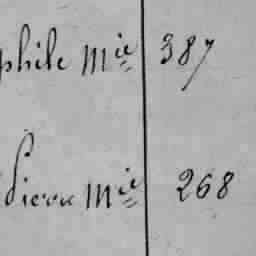 phile Mie 387
Pierre Mie 268